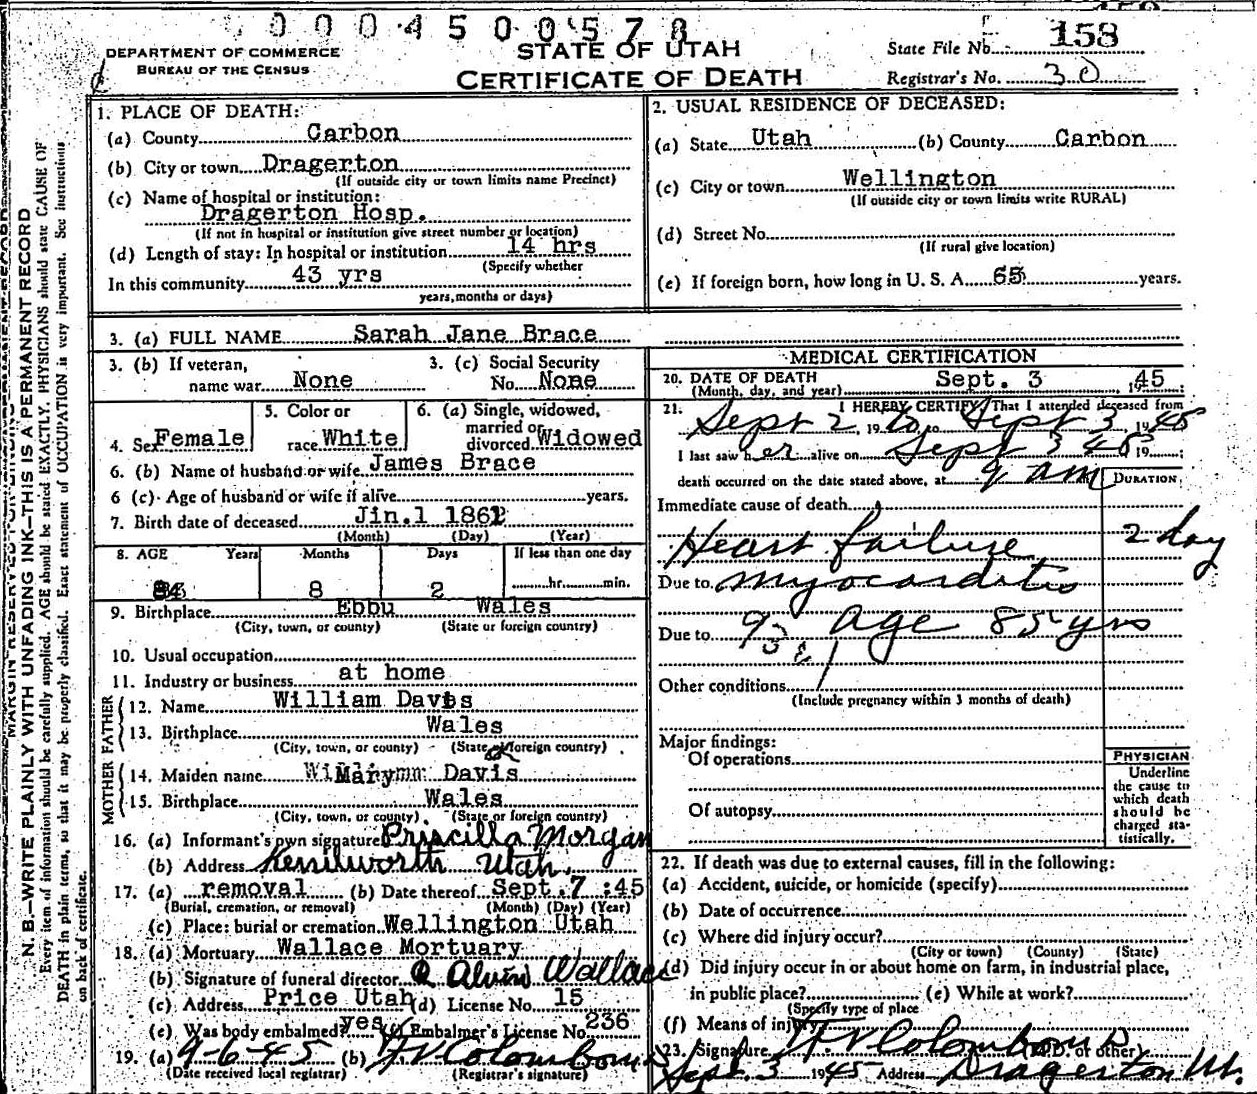 0004500578
DEPARTMENT OF COMMERCE
BUREAU OF THE CENSUS
STATE OF UTAH
CERTIFICATE OF DEATH
State File No. 158
Registrar's No. 30
MARGIN RESERVED FOR BINDING—THIS IS A PERMANENT RECORD
N. B.—WRITE PLAINLY WITH UNFADING INK—THIS IS A PERMANENT RECORD
Every item of information should be carefully supplied. AGE should be stated EXACTLY. PHYSICIANS should state CAUSE OF
DEATH in plain terms, so that it may be properly classified. Exact statement of OCCUPATION is very important. See instructions
on back of certificate.
1. PLACE OF DEATH:
(a) County Carbon
(b) City or town Dragerton
(If outside city or town limits name Precinct)
(c) Name of hospital or institution:
Dragerton Hosp.
(If not in hospital or institution give street number or location)
(d) Length of stay: In hospital or institution 14 hrs
(Specify whether
In this community 43 yrs
years, months or days)
2. USUAL RESIDENCE OF DECEASED:
(a) State Utah (b) County Carbon
(c) City or town Wellington
(If outside city or town limits write RURAL)
(d) Street No.
(If rural give location)
(e) If foreign born, how long in U. S. A. 65 years.
3. (a) FULL NAME Sarah Jane Brace
3. (b) If veteran, name war None
3. (c) Social Security No. None
4. Sex Female
5. Color or race White
6. (a) Single, widowed, married or divorced Widowed
6. (b) Name of husband or wife James Brace
6 (c) Age of husband or wife if alive years.
7. Birth date of deceased Jin.1 186
(Month) (Day) (Year)
8. AGE Years Months Days If less than one day
8 2 hr. min.
9. Birthplace Ebbu Wales
(City, town, or county) (State or foreign country)
10. Usual occupation
11. Industry or business at home
FATHER
12. Name William Davis
13. Birthplace Wales
(City, town, or county) (State or foreign country)
MOTHER
14. Maiden name Mary Davis
15. Birthplace Wales
(City, town, or county) (State or foreign country)
16. (a) Informant's own signature Priscilla Morgan
(b) Address Kenilworth Utah.
17. (a) removal (b) Date thereof Sept. 7 :45
(Burial, cremation, or removal) (Month) (Day) (Year)
(c) Place: burial or cremation Wellington Utah
18. (a) Mortuary Wallace Mortuary
(b) Signature of funeral director Alvin Wallace
(c) Address Price Utah (d) License No. 15
(e) Was body embalmed? yes (f) Embalmer's License No. 236
19. (a) 9-6-45 (b) Colombo
(Date received local registrar) (Registrar's signature)
MEDICAL CERTIFICATION
20. DATE OF DEATH Sept. 3 , 45
(Month, day, and year)
21. I HEREBY CERTIFY, That I attended deceased from
Sept 2, 19 to Sept 3 1945
I last saw her alive on Sept 3 45 19
death occurred on the date stated above, at 9 am
DURATION
Immediate cause of death
Heart failure 2 day
Due to myocarditis
Due to 93 age 85 yrs
Other conditions
(Include pregnancy within 3 months of death)
Major findings:
Of operations
Of autopsy
PHYSICIAN
Underline
the cause to
which death
should be
charged sta-
tistically.
22. If death was due to external causes, fill in the following:
(a) Accident, suicide, or homicide (specify)
(b) Date of occurrence
(c) Where did injury occur?
(City or town) (County) (State)
(d) Did injury occur in or about home on farm, in industrial place,
in public place? (e) While at work?
(Specify type of place
(f) Means of injury
23. Signature Colombo (M.D. or other)
Sept 3 1945 Address Dragerton Ut.